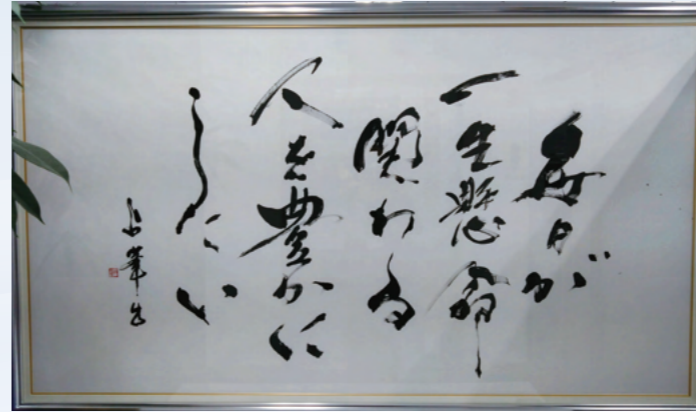 毎日が
一生懸命
関わる
人を豊かに
したい